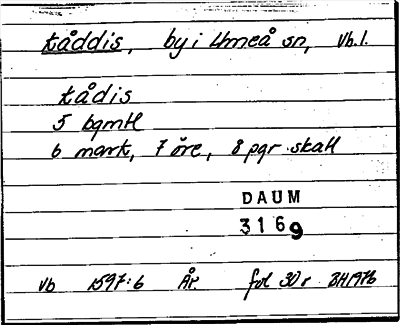 Kåddis, by i Umeå sn, Vb.l.
Kådis
5 bqmtl
6 mark, 7 öre, 8 pgr skatt
DAUM
3169
Vb 1597:6 År fol 30 r BH1976